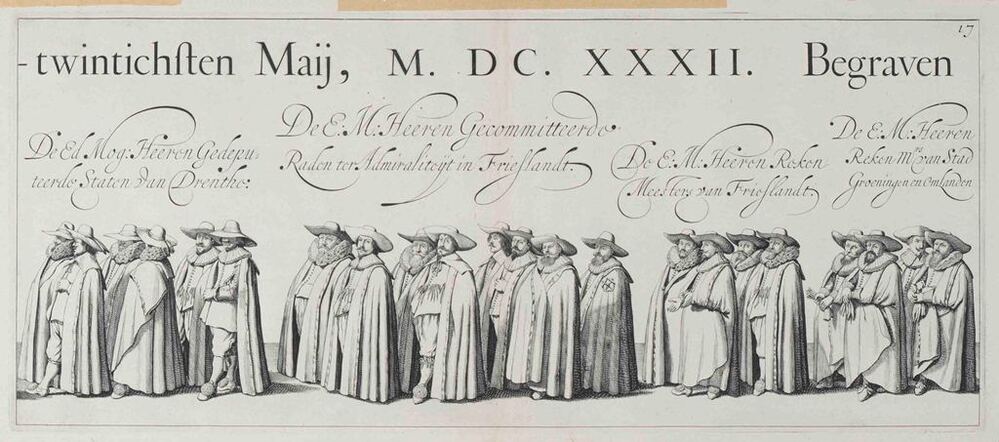 17
-twintichſten Maij, M. DC. XXXII. Begraven
De Ed Mog: Heeren Gedepu-
teerde Staten van Drenthe:
De E: M: Heeren Gecommitteerde
Raden ter Admiraliteÿt in Frieſlandt.
De E: M: Heeren Reken
Meesters van Frieſlandt.
De E: M: Heeren
Reken Mrs van Stad
Groeningen en Omlanden